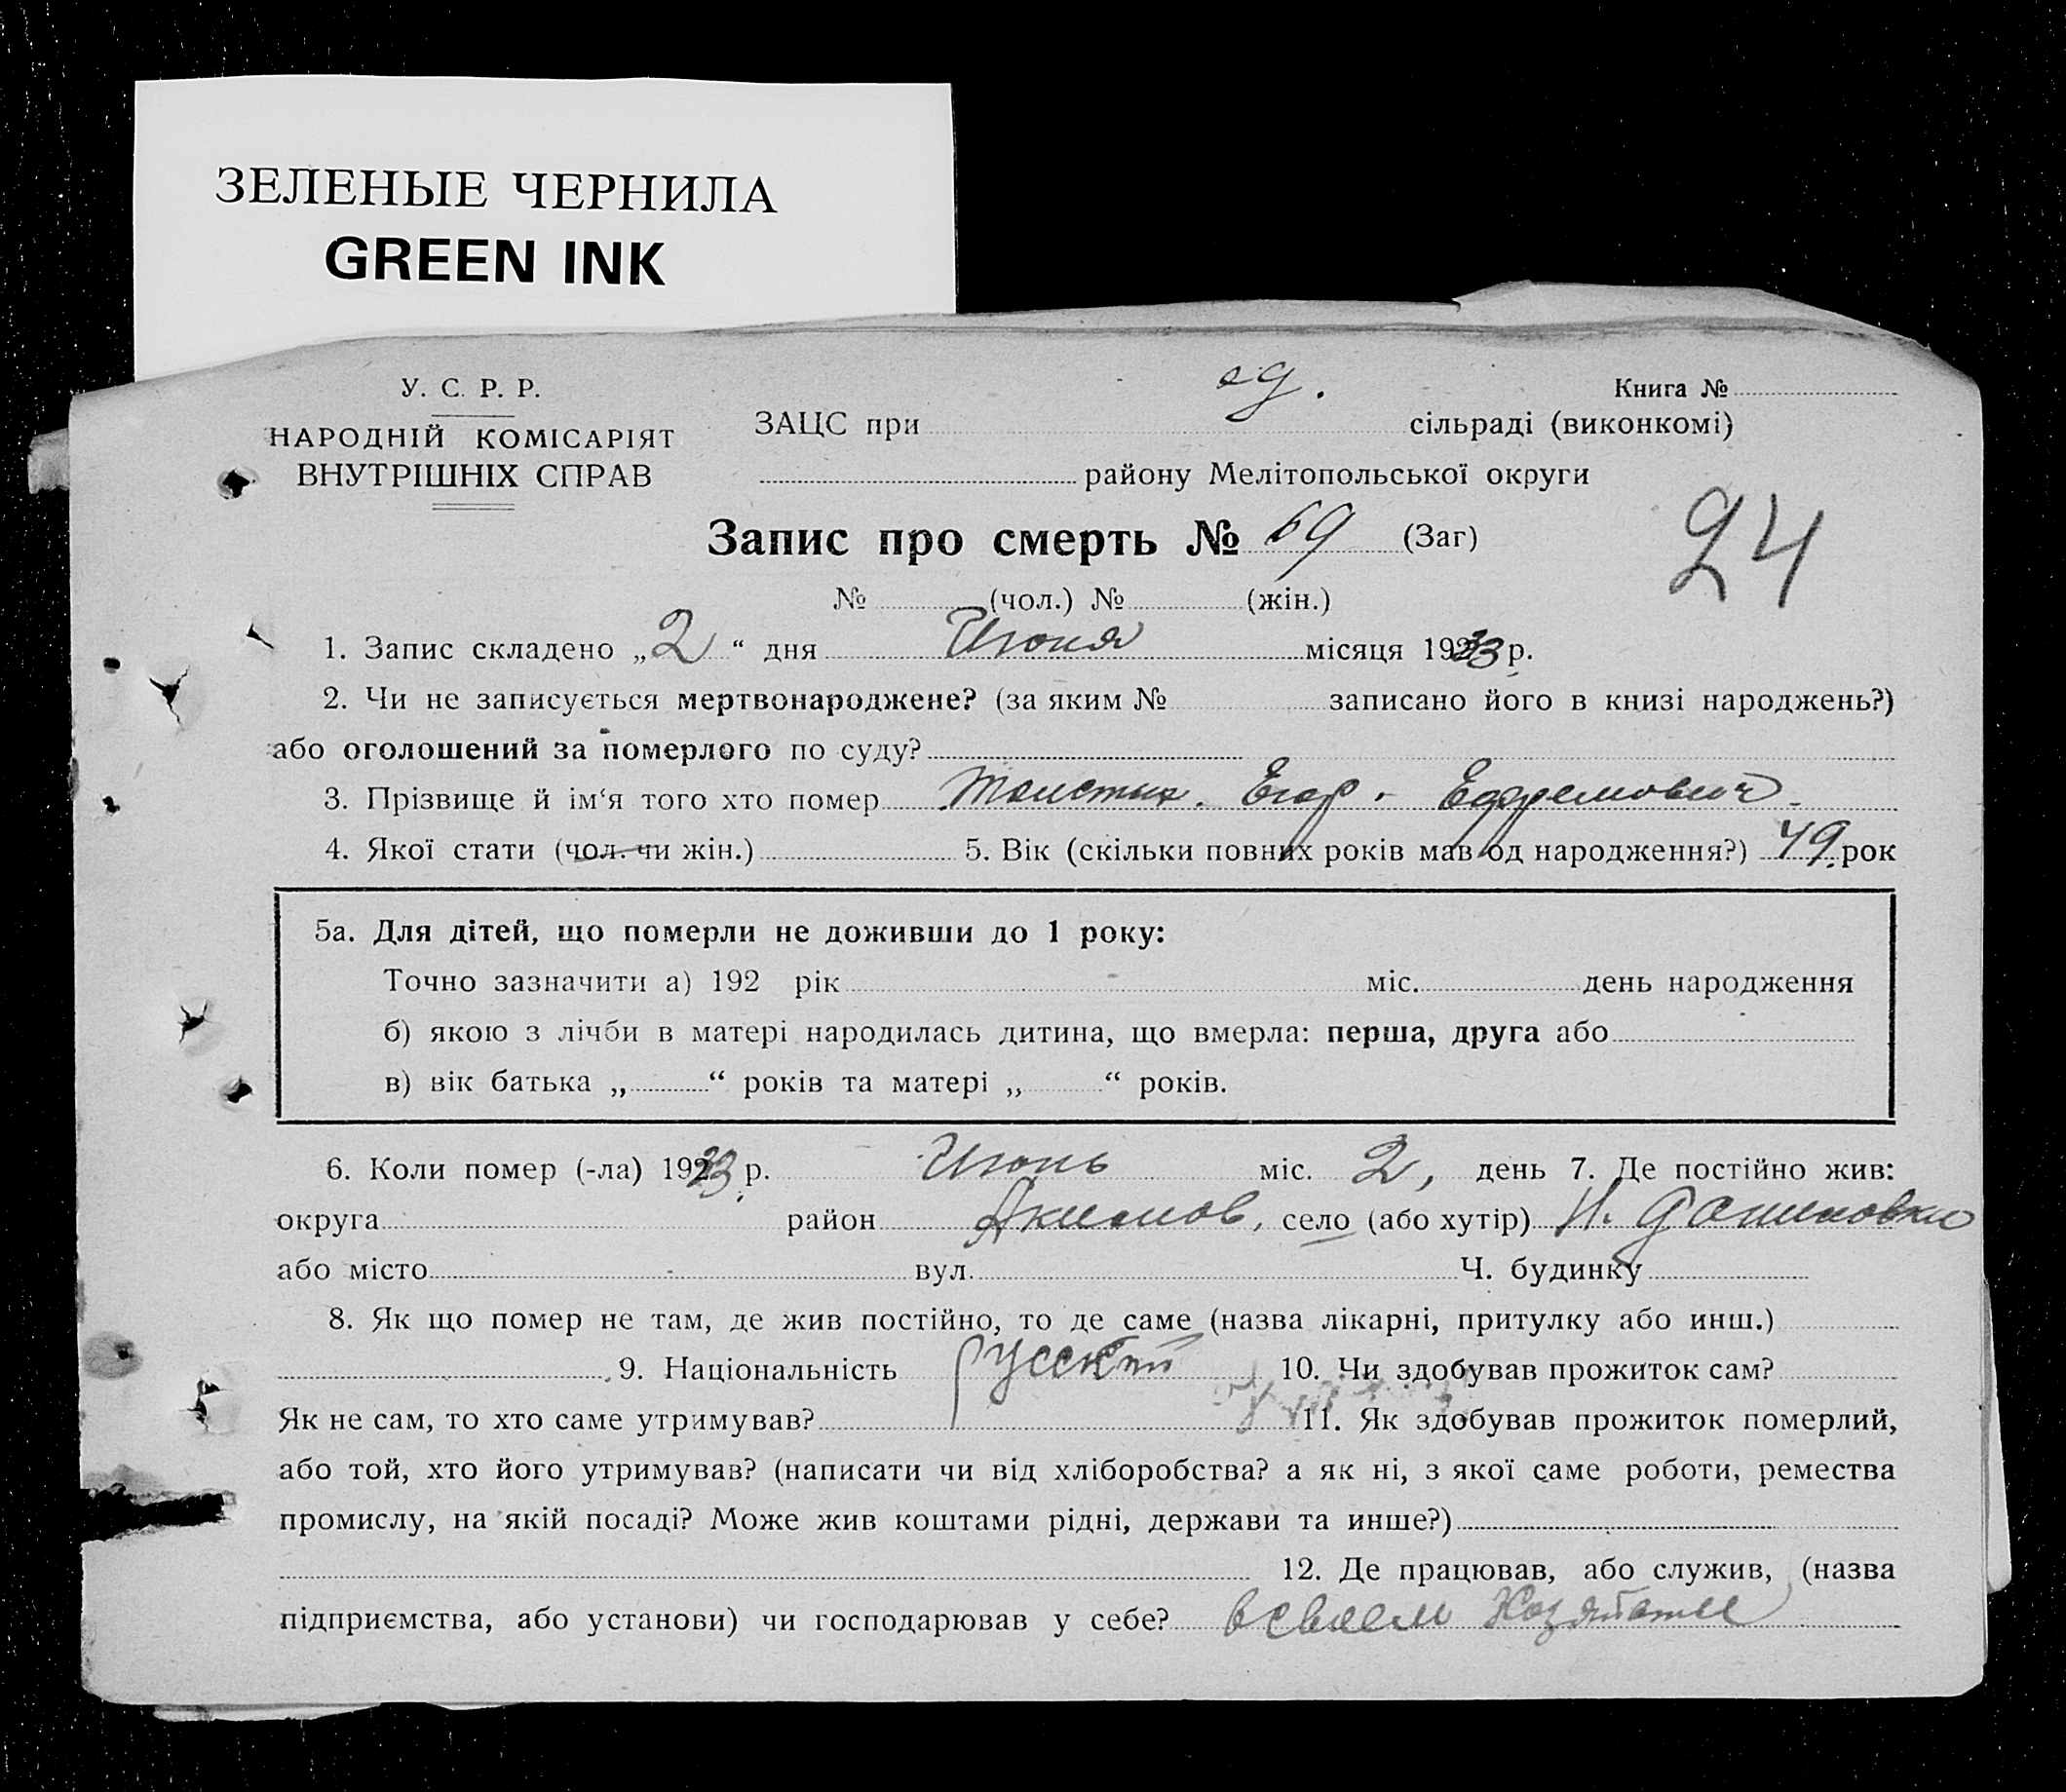 ЗЕЛЕНЫЕ ЧЕРНИЛА
GREEN INK
У. С. Р. Р.
НАРОДНІЙ КОМІСАРІЯТ
ВНУТРІШНІХ СПРАВ
Книга №
ЗАЦС при сільраді (виконкомі)
району Мелітопольської округи
Запис про смерть № 69 (Заг)
24
№ (чол.) № (жін.)
1. Запис складено „2“ дня Июня місяця 1933 р.
2. Чи не записується мертвонароджене? (за яким № записано його в книзі народжень?)
або оголошений за померлого по суду?
3. Прізвище й ім‘я того хто помер Толстых. Егор. Ефремович.
4. Якої стати (чол. чи жін.) 5. Вік (скільки повних років мав од народження?) 49 рок
5а. Для дітей, що померли не доживши до 1 року:
Точно зазначити а) 192 рік міс. день народження
б) якою з лічби в матері народилась дитина, що вмерла: перша, друга або
в) вік батька „ “ років та матері „ “ років.
6. Коли помер (-ла) 1933 р. Июнь міс. 2, день 7. Де постійно жив:
округа район Акимов, село (або хутір) Н. Даниловки
або місто вул. Ч. будинку
8. Як що помер не там, де жив постійно, то де саме (назва лікарні, притулку або инш.)
9. Національність русский 10. Чи здобував прожиток сам?
Як не сам, то хто саме утримував? 11. Як здобував прожиток померлий,
або той, хто його утримував? (написати чи від хліборобства? а як ні, з якої саме роботи, ремества
промислу, на якій посаді? Може жив коштами рідні, держави та инше?)
12. Де працював, або служив, (назва
підприємства, або установи) чи господарював у себе? в своем